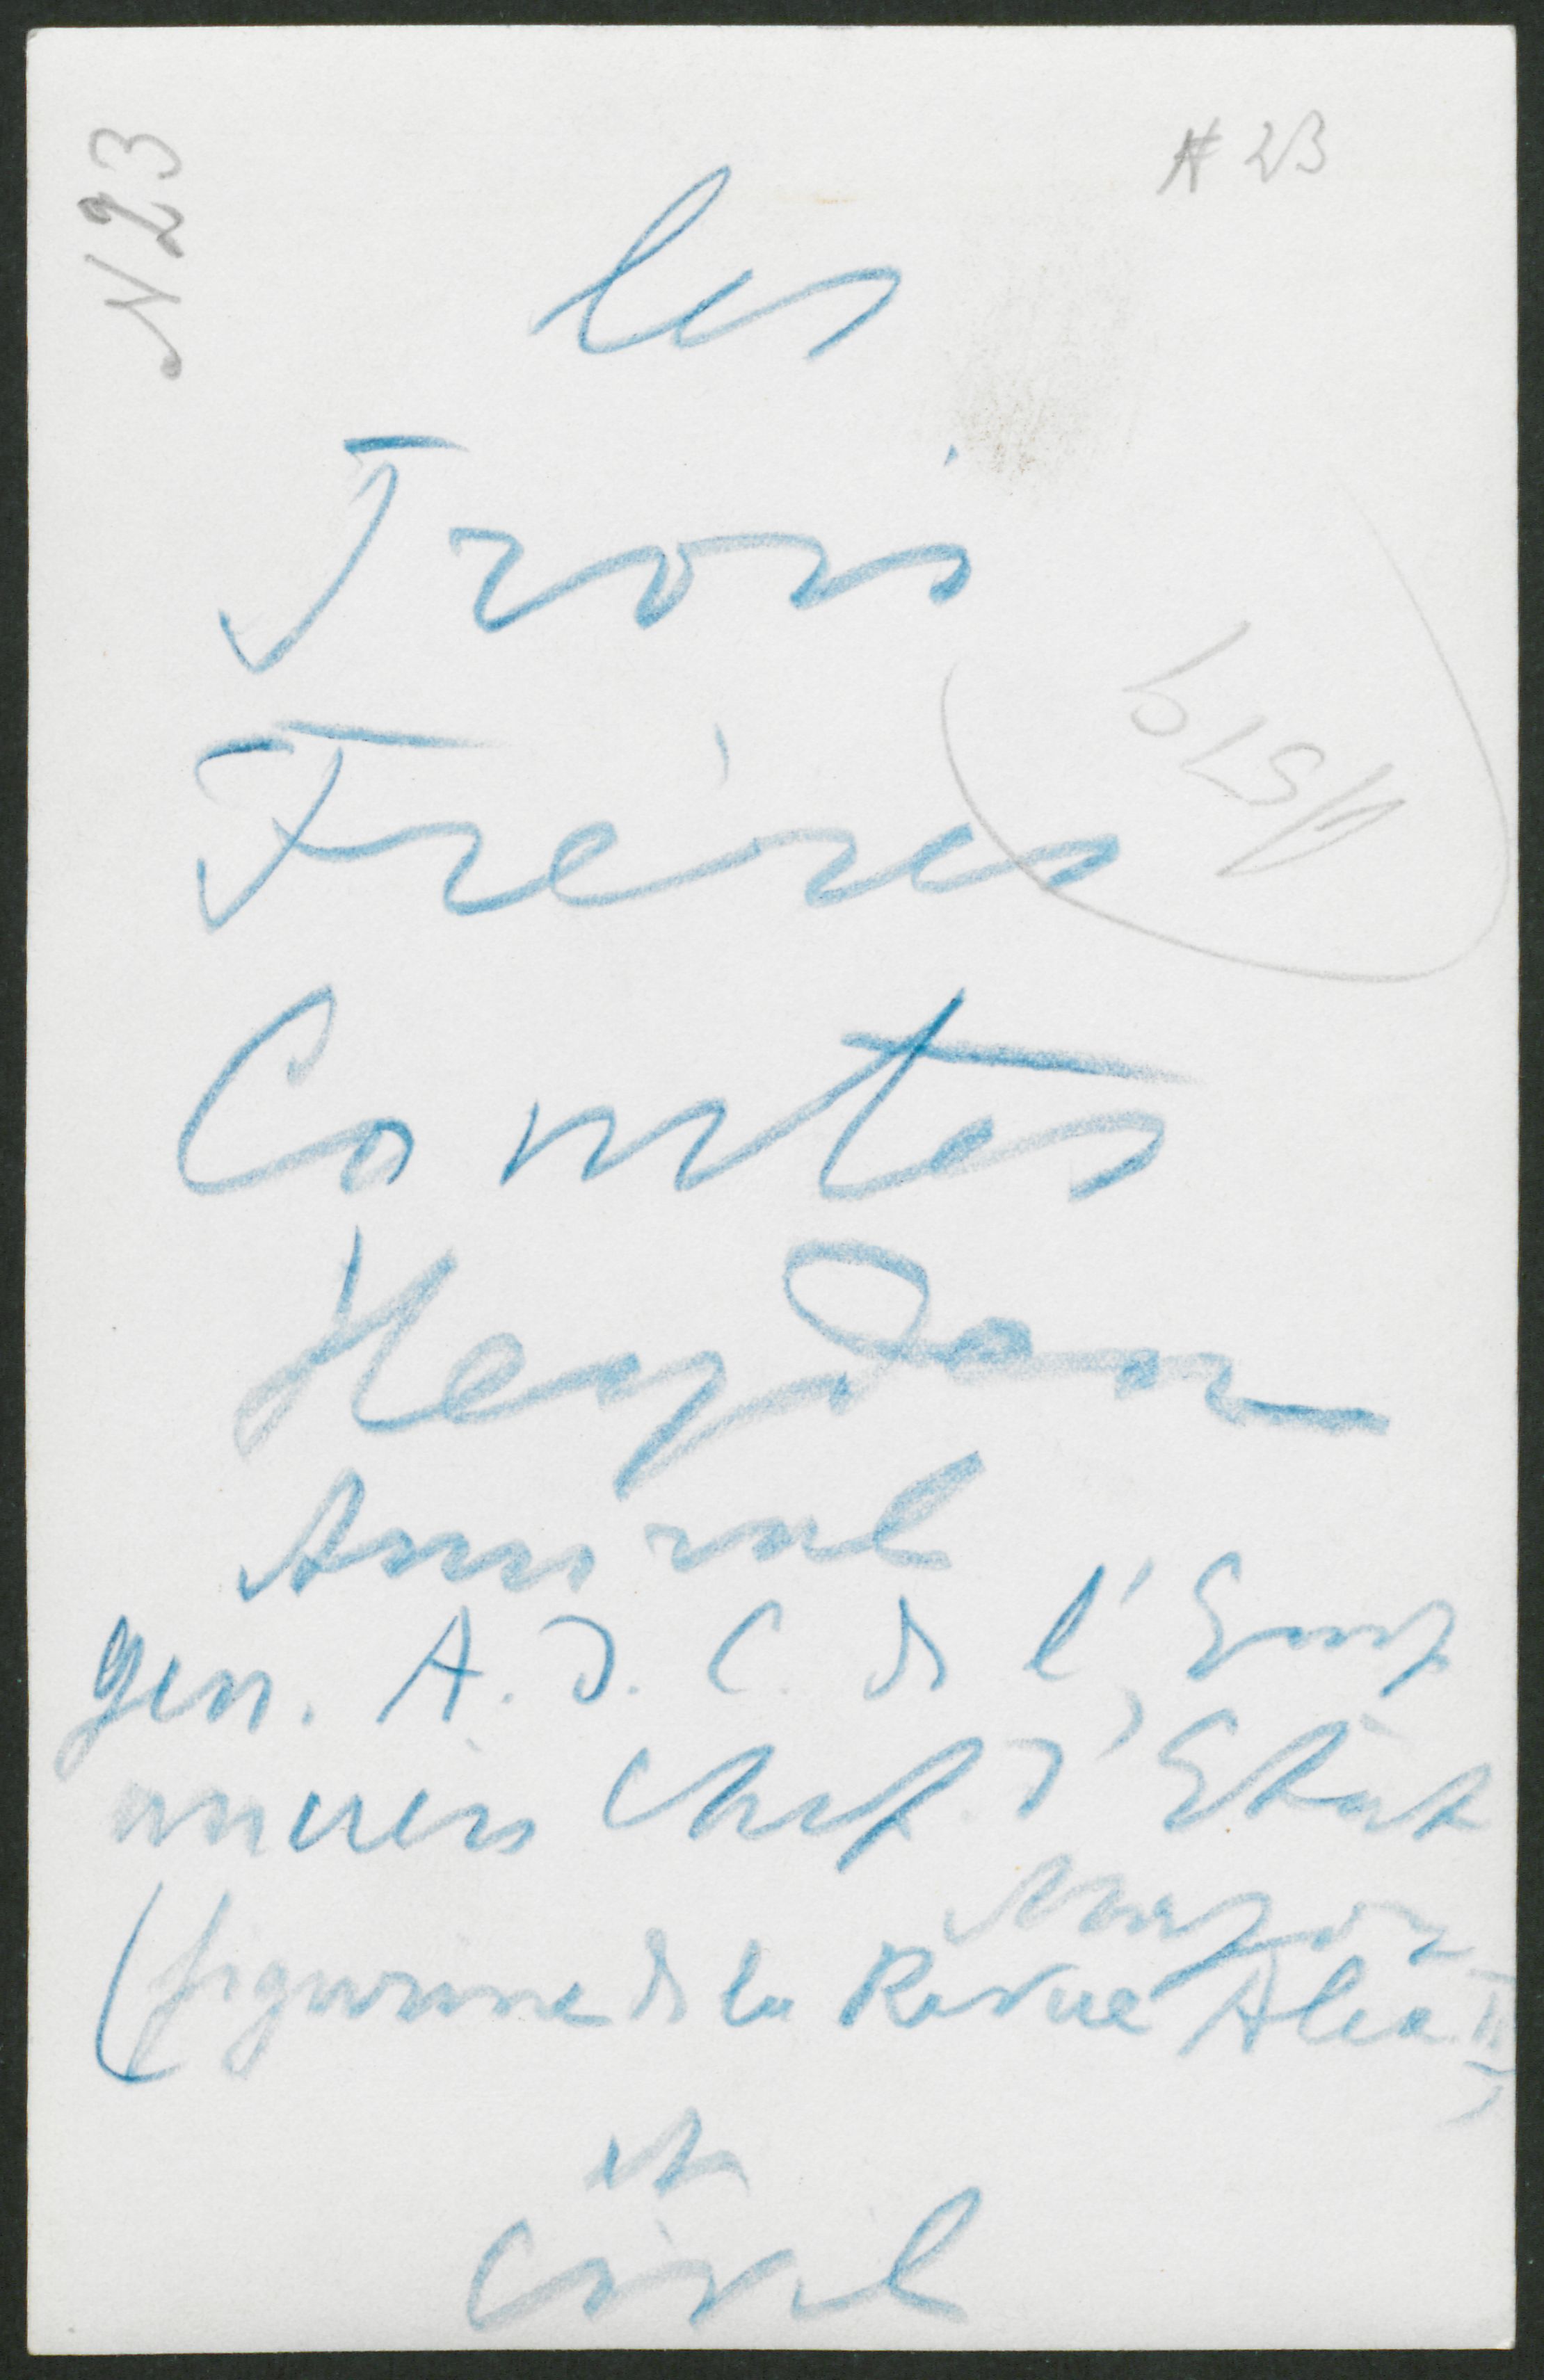 N 23
# 23
les
Trois
Frères
Comtes
Heyden
Amiral
gen. A. D. C. de l'Emp
ancien Chef d'Etat
Major
(figurine de la Revue Alex. III)
et
Civil